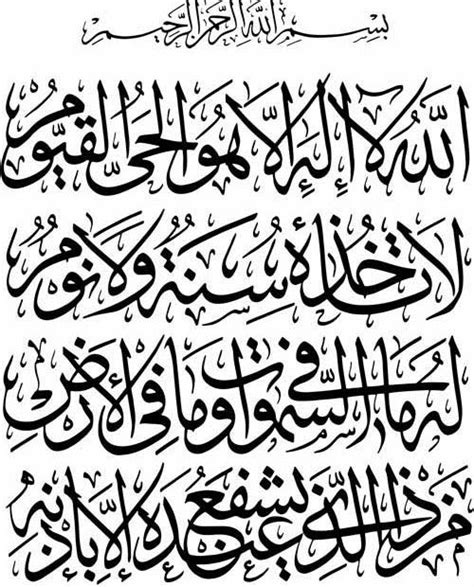 بسم الله الرحمن الرحيم
الله لا إله إلا هو الحي القيوم
لا تأخذه سنة ولا نوم
له ما في السموات وما في الأرض
من ذا الذي يشفع عنده إلا بإذنه